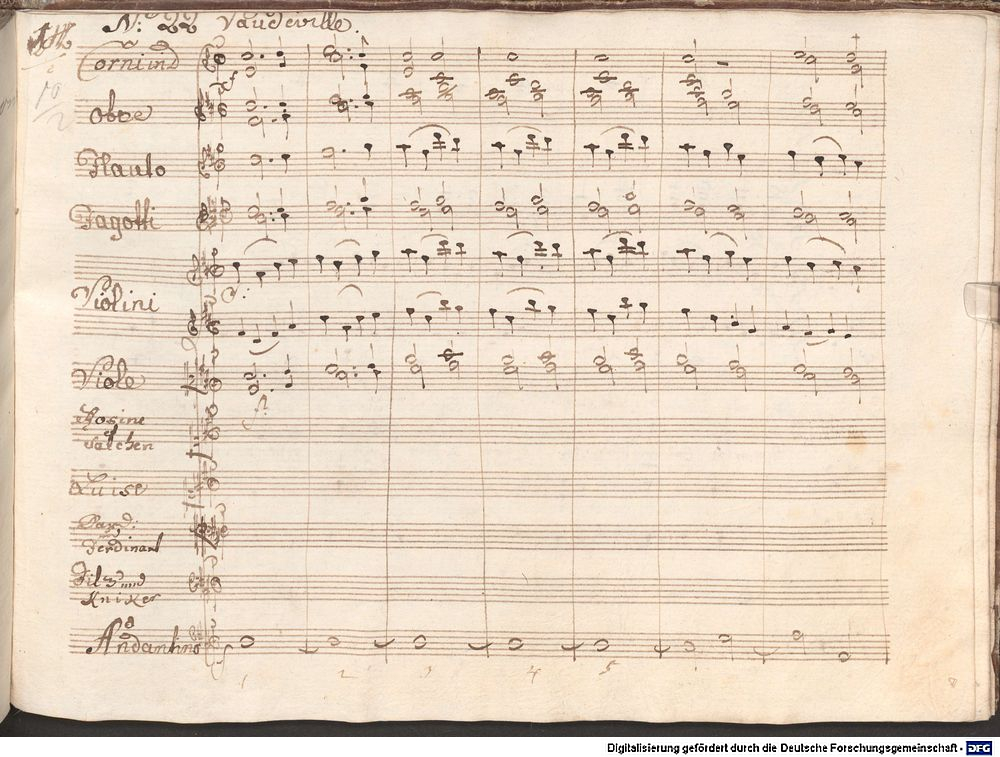 N: 22 Vaudeville.
Corni in D
oboe
Flauto
Fagotti
Violini
Viole
Rosine
et
Salchen
Luise
Ferdinand
Filz und
Knicker
Andantino
1 2 3 4 5
Digitalisierung gefördert durch die Deutsche Forschungsgemeinschaft - DFG